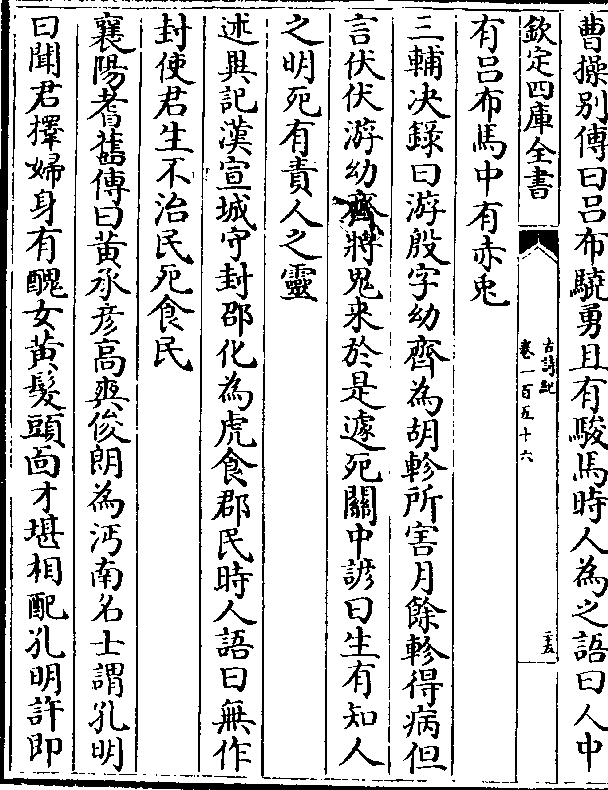 曹操别傳曰吕布驍勇且有駿馬時人為之語曰人中
欽定四庫全書
古詩紀
卷一百五十六
二十五
有吕布馬中有赤兎
三輔决錄曰游殷字幼齊為胡軫所害月餘軫得病但
言伏伏游幼齊將鬼來於是遂死關中諺曰生有知人
之明死有責人之靈
述異記漢宣城守封邵化為虎食郡民時人語曰無作
封使君生不治民死食民
襄陽耆舊傳曰黄承彦高爽俊朗為沔南名士謂孔明
曰聞君擇婦身有醜女黄髮頭面才堪相配孔明許即